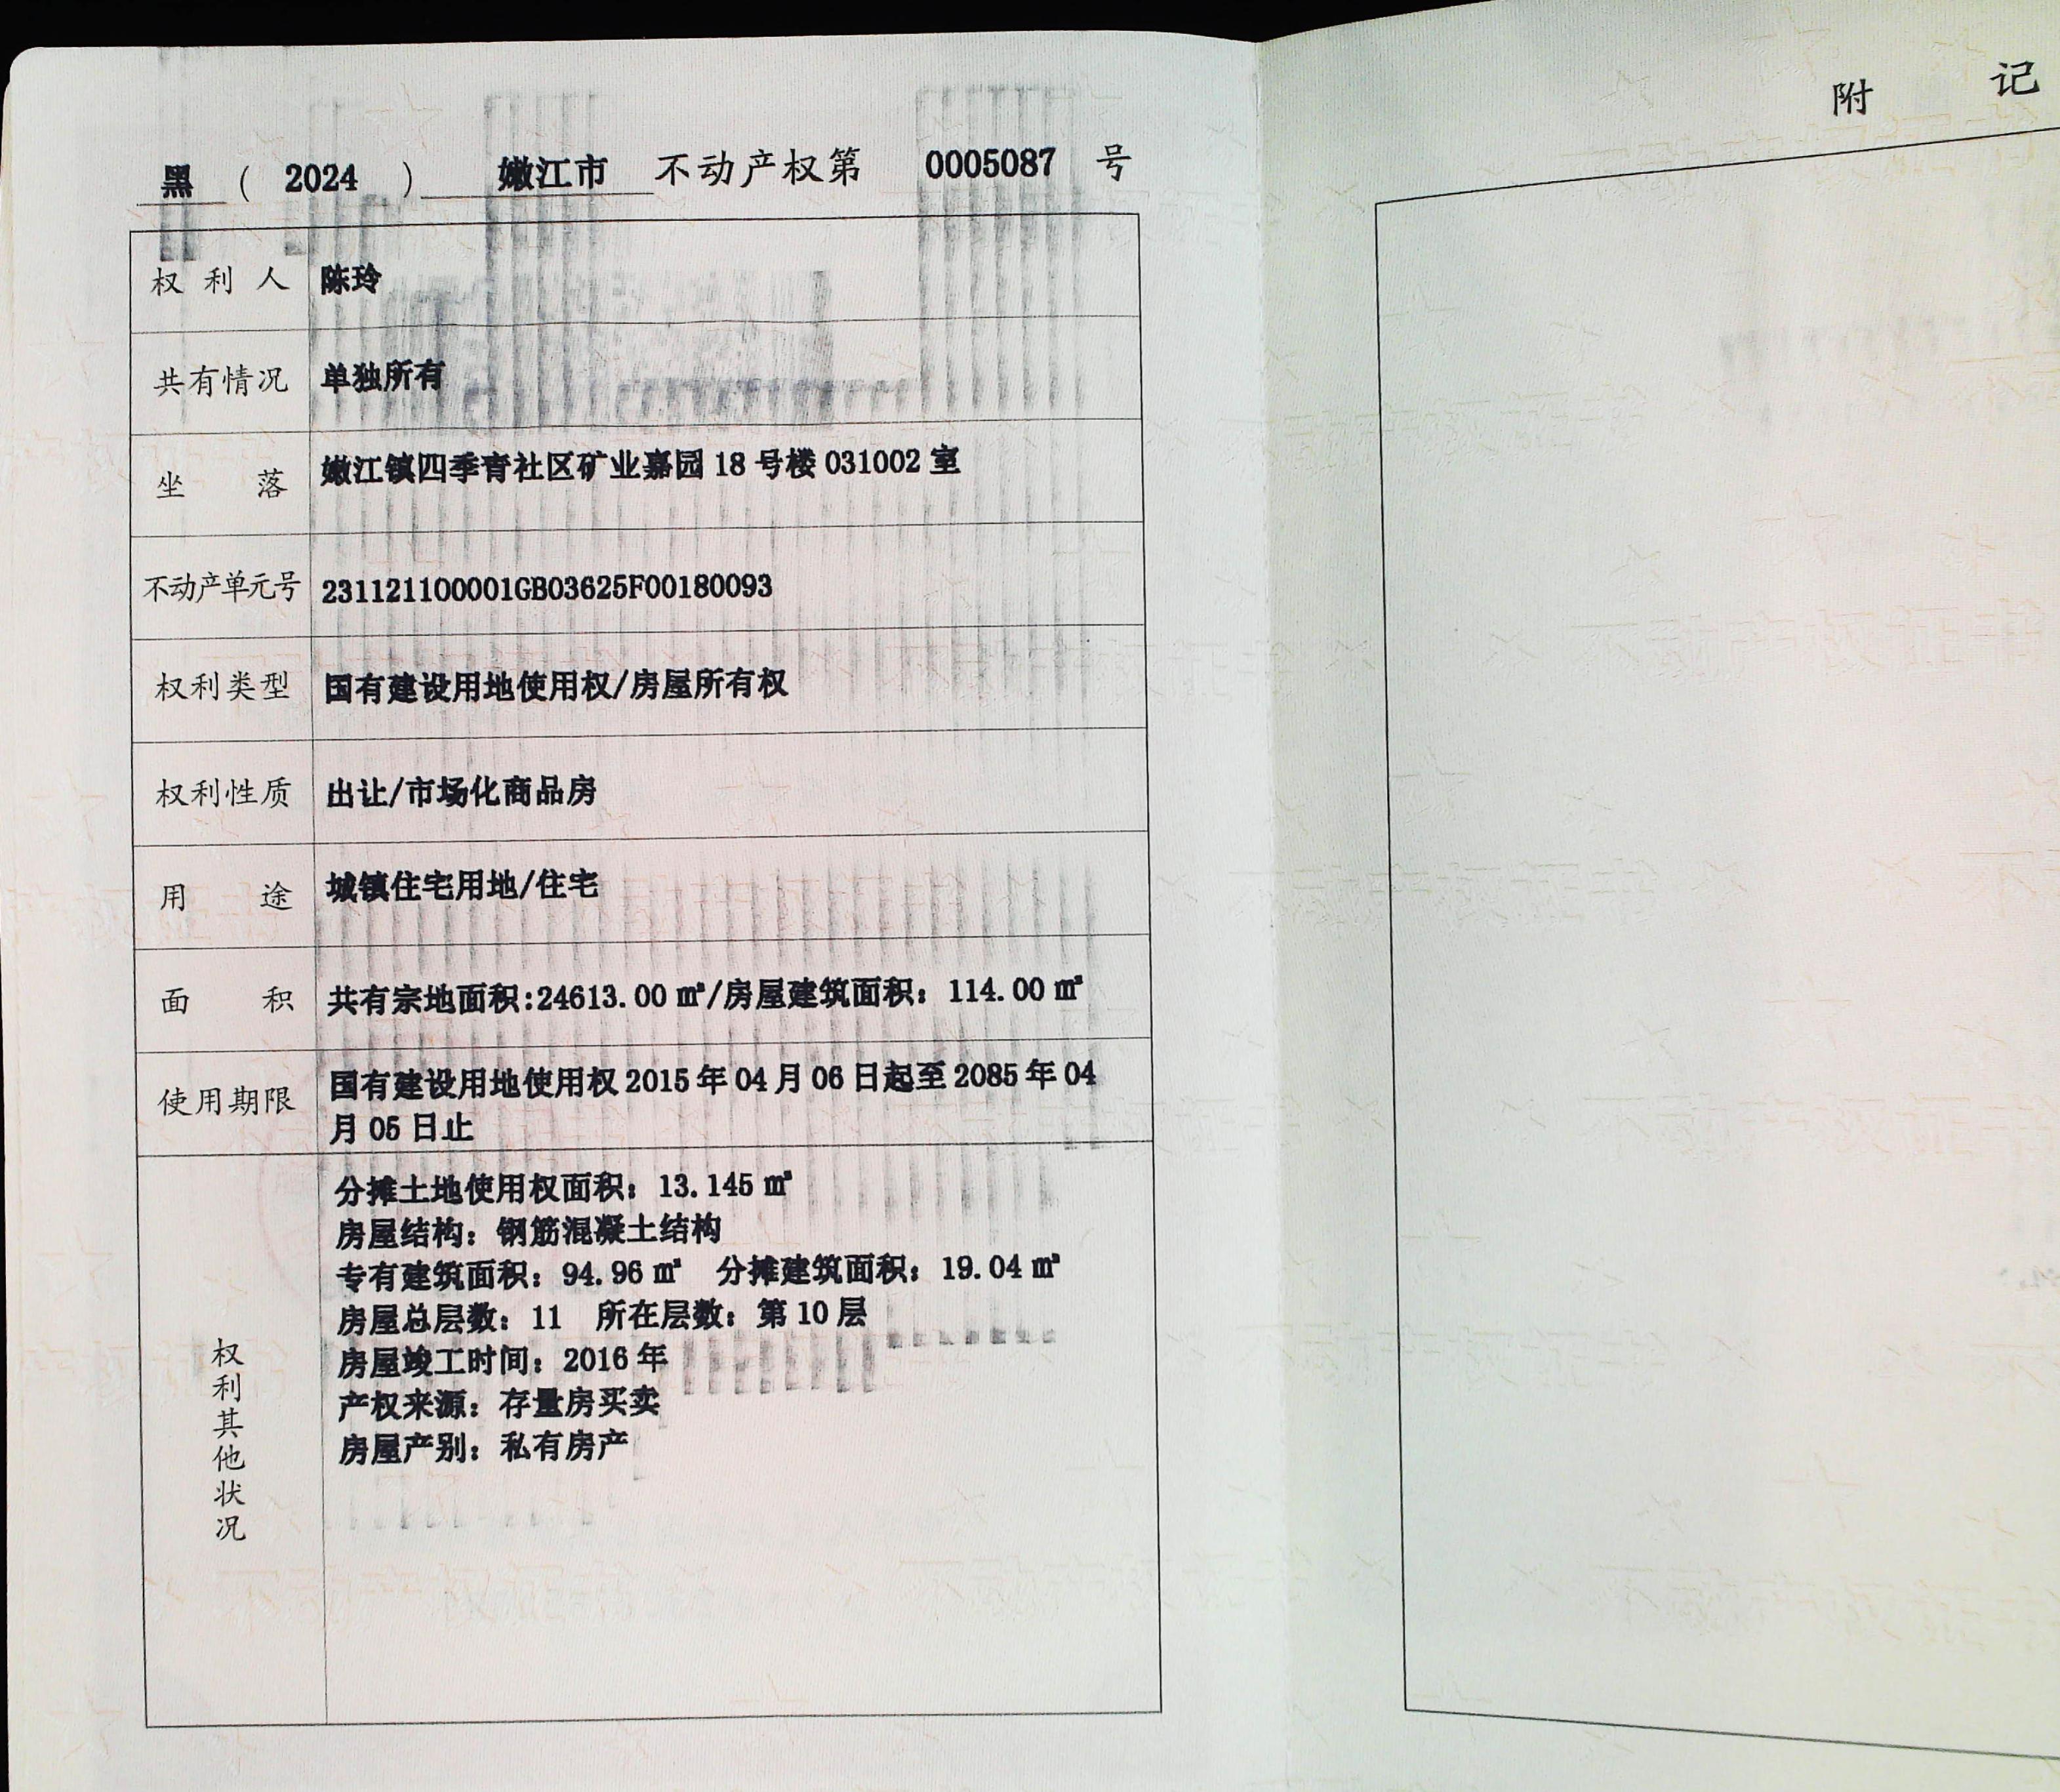 黑 ( 2024 ) 嫩江市 不动产权第 0005087 号
权利人 陈玲
共有情况 单独所有
坐落 嫩江镇四季青社区矿业嘉园 18 号楼 031002 室
不动产单元号 231121100001GB03625F00180093
权利类型 国有建设用地使用权/房屋所有权
权利性质 出让/市场化商品房
用途 城镇住宅用地/住宅
面积 共有宗地面积:24613.00 ㎡/房屋建筑面积：114.00 ㎡
使用期限 国有建设用地使用权 2015 年 04 月 06 日起至 2085 年 04
月 05 日止
权利其他状况
分摊土地使用权面积：13.145 ㎡
房屋结构：钢筋混凝土结构
专有建筑面积：94.96 ㎡ 分摊建筑面积：19.04 ㎡
房屋总层数：11 所在层数：第 10 层
房屋竣工时间：2016 年
产权来源：存量房买卖
房屋产别：私有房产
附记